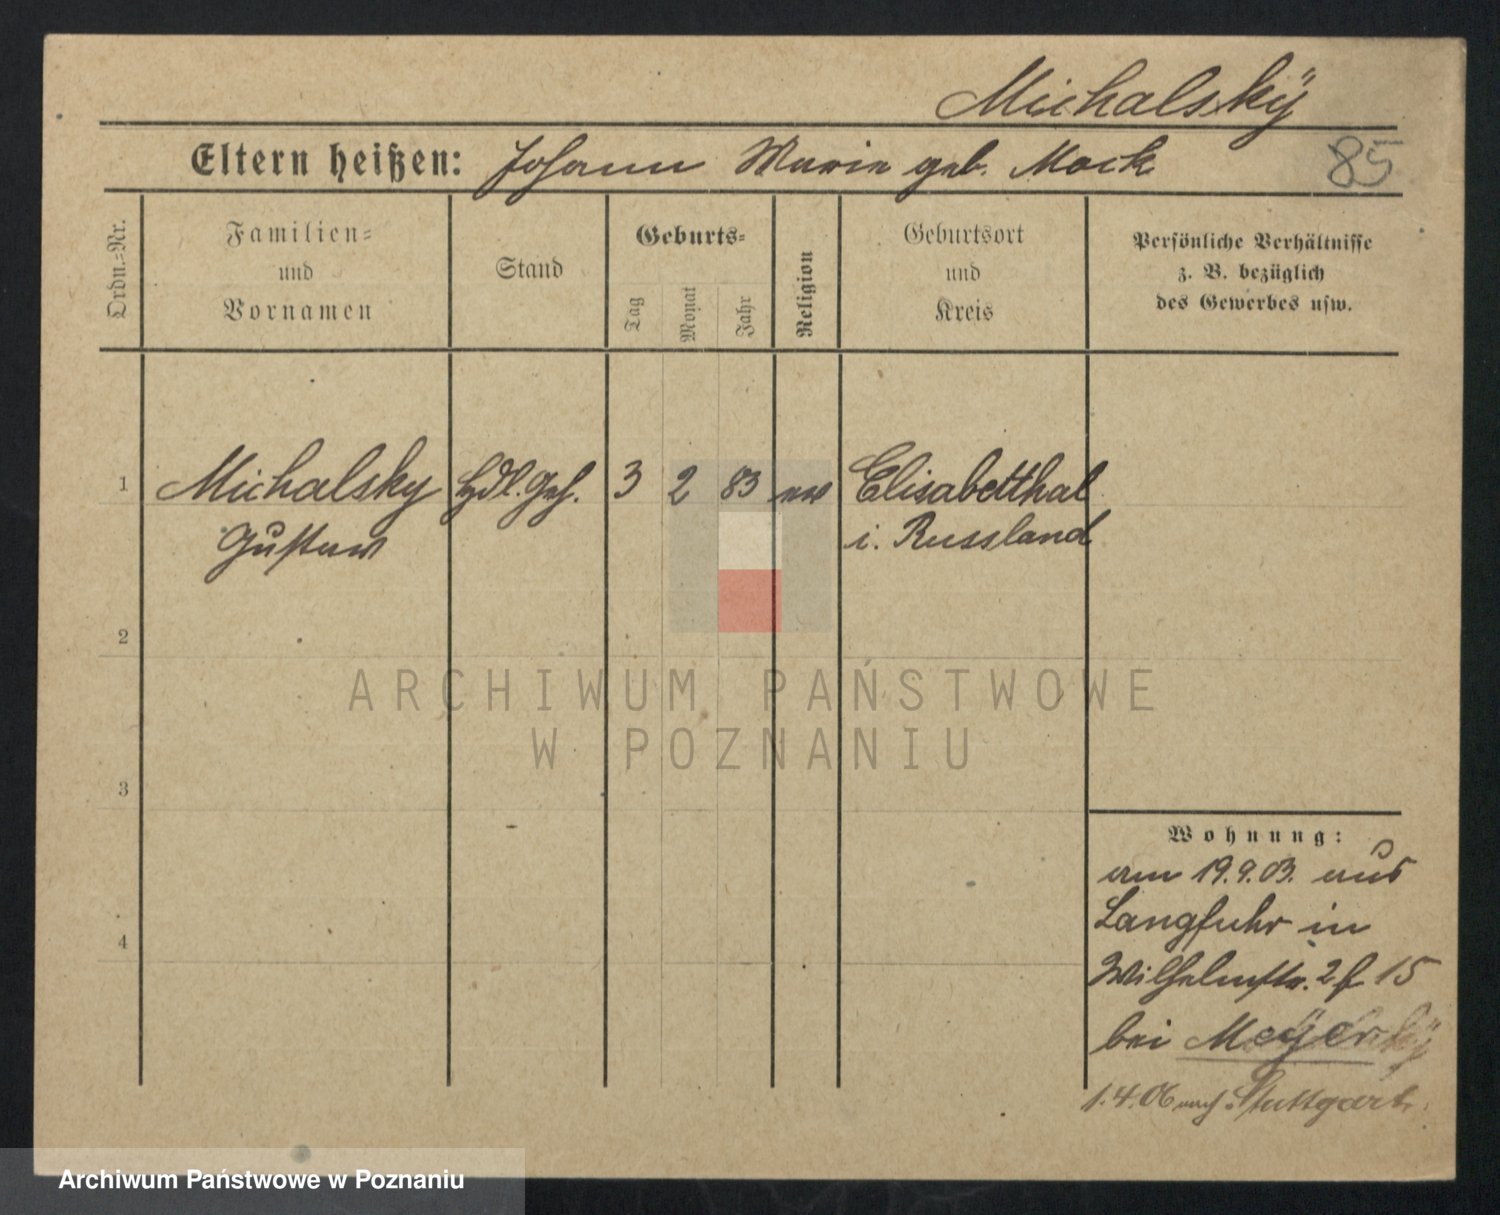 Michalsky
Eltern heißen: Johann Marie geb. Mock
85
Ordn.=Nr.
Familien=
und
Vornamen
Stand
Geburts=
Tag
Monat
Jahr
Religion
Geburtsort
und
Kreis
Persönliche Verhältnisse
z. B. bezüglich
des Gewerbes usw.
1 Michalsky Hdl. Geh. 3 2 83 ev Elisabetthal
Gustav i. Russland
2
ARCHIWUM PAŃSTWOWE
W POZNANIU
3
Wohnung:
am 19.9.03. aus
Langfuhr in
4
Wilhelmstr. 15
bei Meyer
1.4.06 nach Stuttgart.
Archiwum Państwowe w Poznaniu